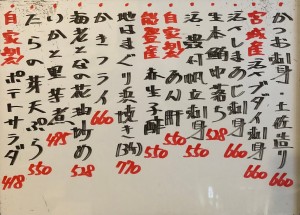 かつお刺身・土佐造り 660
宮城産 活〆ブダイ刺身 660
活〆しまあじ刺身 660
生本鮪中落ち 528
活〆豊付帆立刺身 550
自家製 あん肝 550
能登産 赤生子酢 550
地はまぐり浜焼き(3ヶ) 770
かきフライ 660
海老となの花油炒め 528
いかと里芋煮 495
たらの芽天ぷら 550
自家製! ポテトサラダ 418